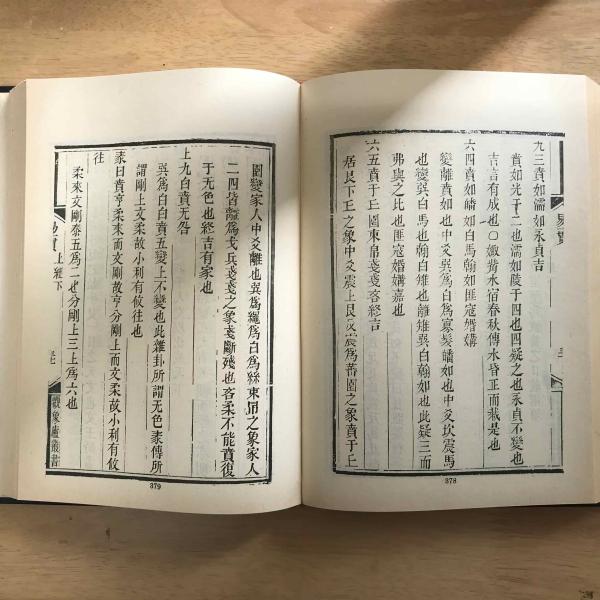 九三賁如濡如永貞吉
賁如光于二也濡如陵于四也四疑之也永貞不變也
吉言有成也○娵觜水宿春秋傳水昏正而栽是也
六四賁如皤如白馬翰如匪寇婚媾
變離賁如也中爻巽爲白爲寡髮皤如也中爻坎震馬
也變巽白馬也翰白雉也離雉巽白翰如也此疑三而
弗與之比也匪寇婚媾嘉也
六五賁于丘園束帛戔戔吝終吉
居艮下丘之象中爻震上艮反震爲蕃園之象賁于丘
易賁
園變家人中爻離也巽爲繩爲白爲絲束帛之象家人
二四皆離爲戈兵戔戔之象戔斷殘也吝柔不能賁復
于无色也終吉有家也
上九白賁无咎
巽爲白白賁五變上不變也此雜卦所謂无色彖傳所
謂剛上文柔故小利有攸往也
彖曰賁亨柔來而文剛故亨分剛上而文柔故小利有攸
往
柔來文剛泰五爲二也分剛上三上爲六也
上經下
379
378